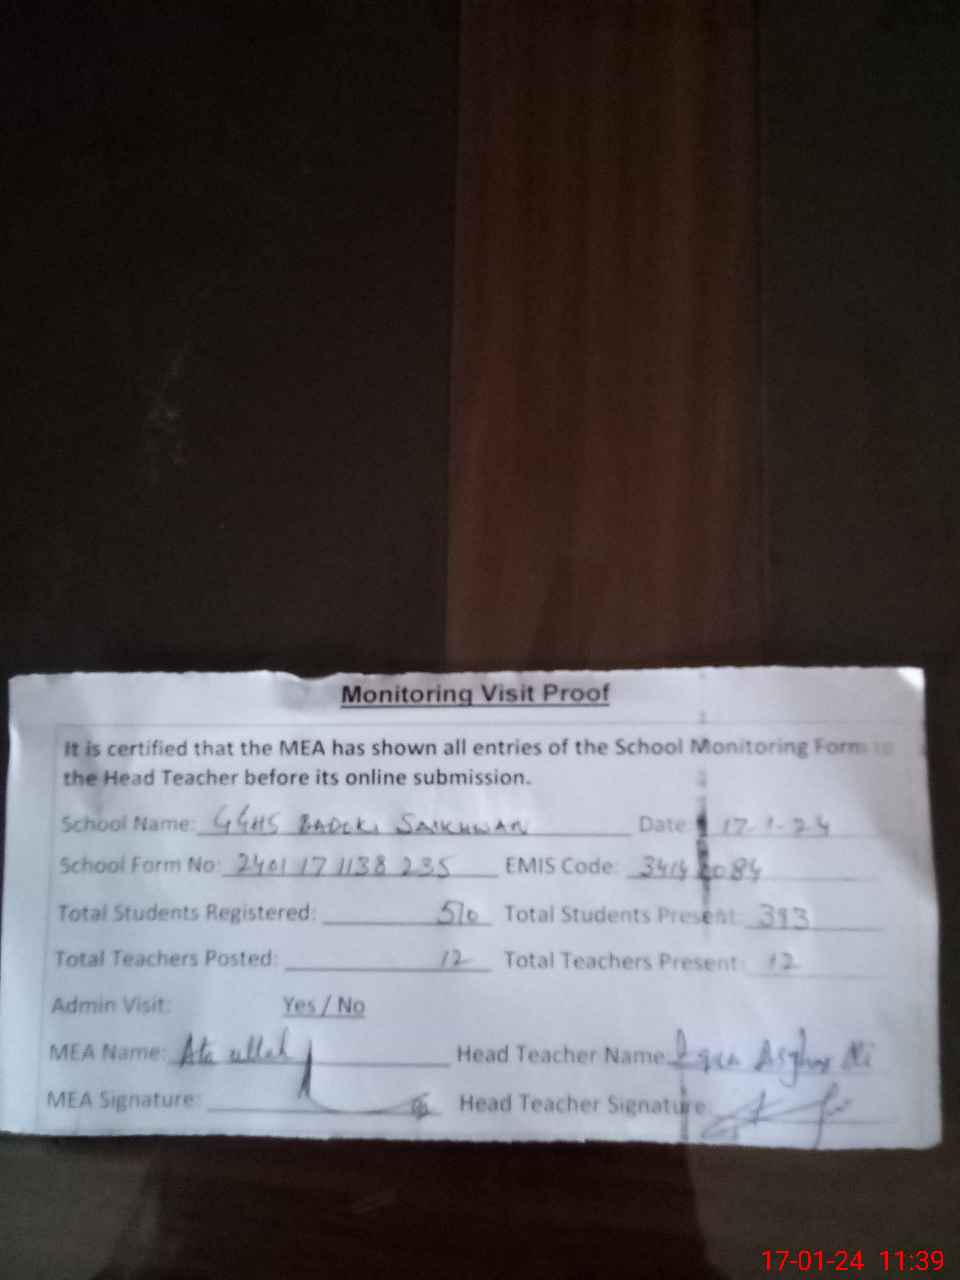 Monitoring Visit Proof
It is certified that the MEA has shown all entries of the School Monitoring Form to
the Head Teacher before its online submission.
School Name: GGHS BADOKI SAIKHWAN Date: 17-1-24
School Form No: 2401171138235 EMIS Code:
Total Students Registered: 510 Total Students Present: 393
Total Teachers Posted: 12 Total Teachers Present: 12
Admin Visit: Yes / No
MEA Name: Ata ullah Head Teacher Name: Iqra Asghar Ali
MEA Signature: Head Teacher Signature:
17-01-24 11:39